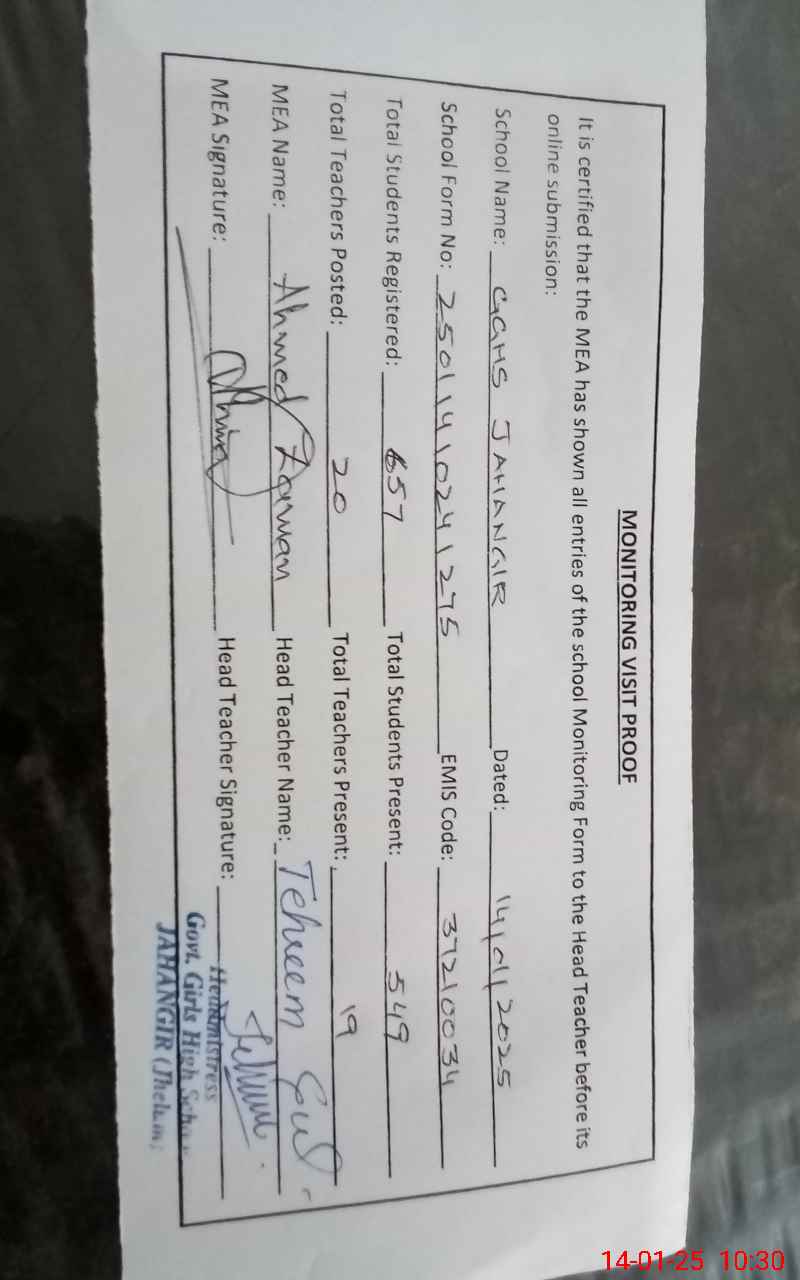 MONITORING VISIT PROOF
It is certified that the MEA has shown all entries of the school Monitoring Form to the Head Teacher before its
online submission:
School Name: GGHS JAHANGIR Dated: 14/01/2025
School Form No: 250114102241275 EMIS Code: 37210034
Total Students Registered: 657 Total Students Present: 549
Total Teachers Posted: 20 Total Teachers Present: 19
MEA Name: Ahmed Zaman Head Teacher Name: Tehreem Gul
MEA Signature: Head Teacher Signature:
Headmistress
Govt. Girls High School
JAHANGIR (Jhelum)
14-01-25 10:30